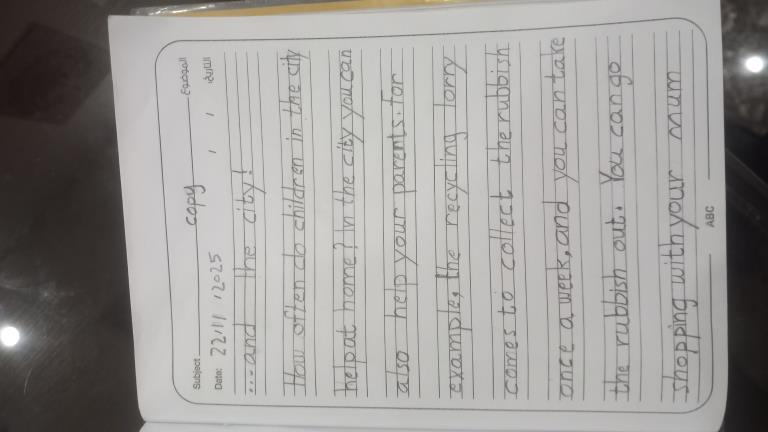 Subject copy الموضوع
Date: 22/11/2025 / / التاريخ
...and the city!
How often do children in the city
help at home? In the city you can
also help your parents. for
example, the recycling lorry
comes to collect the rubbish
once a week, and you can take
the rubbish out. You can go
shopping with your mum
ABC